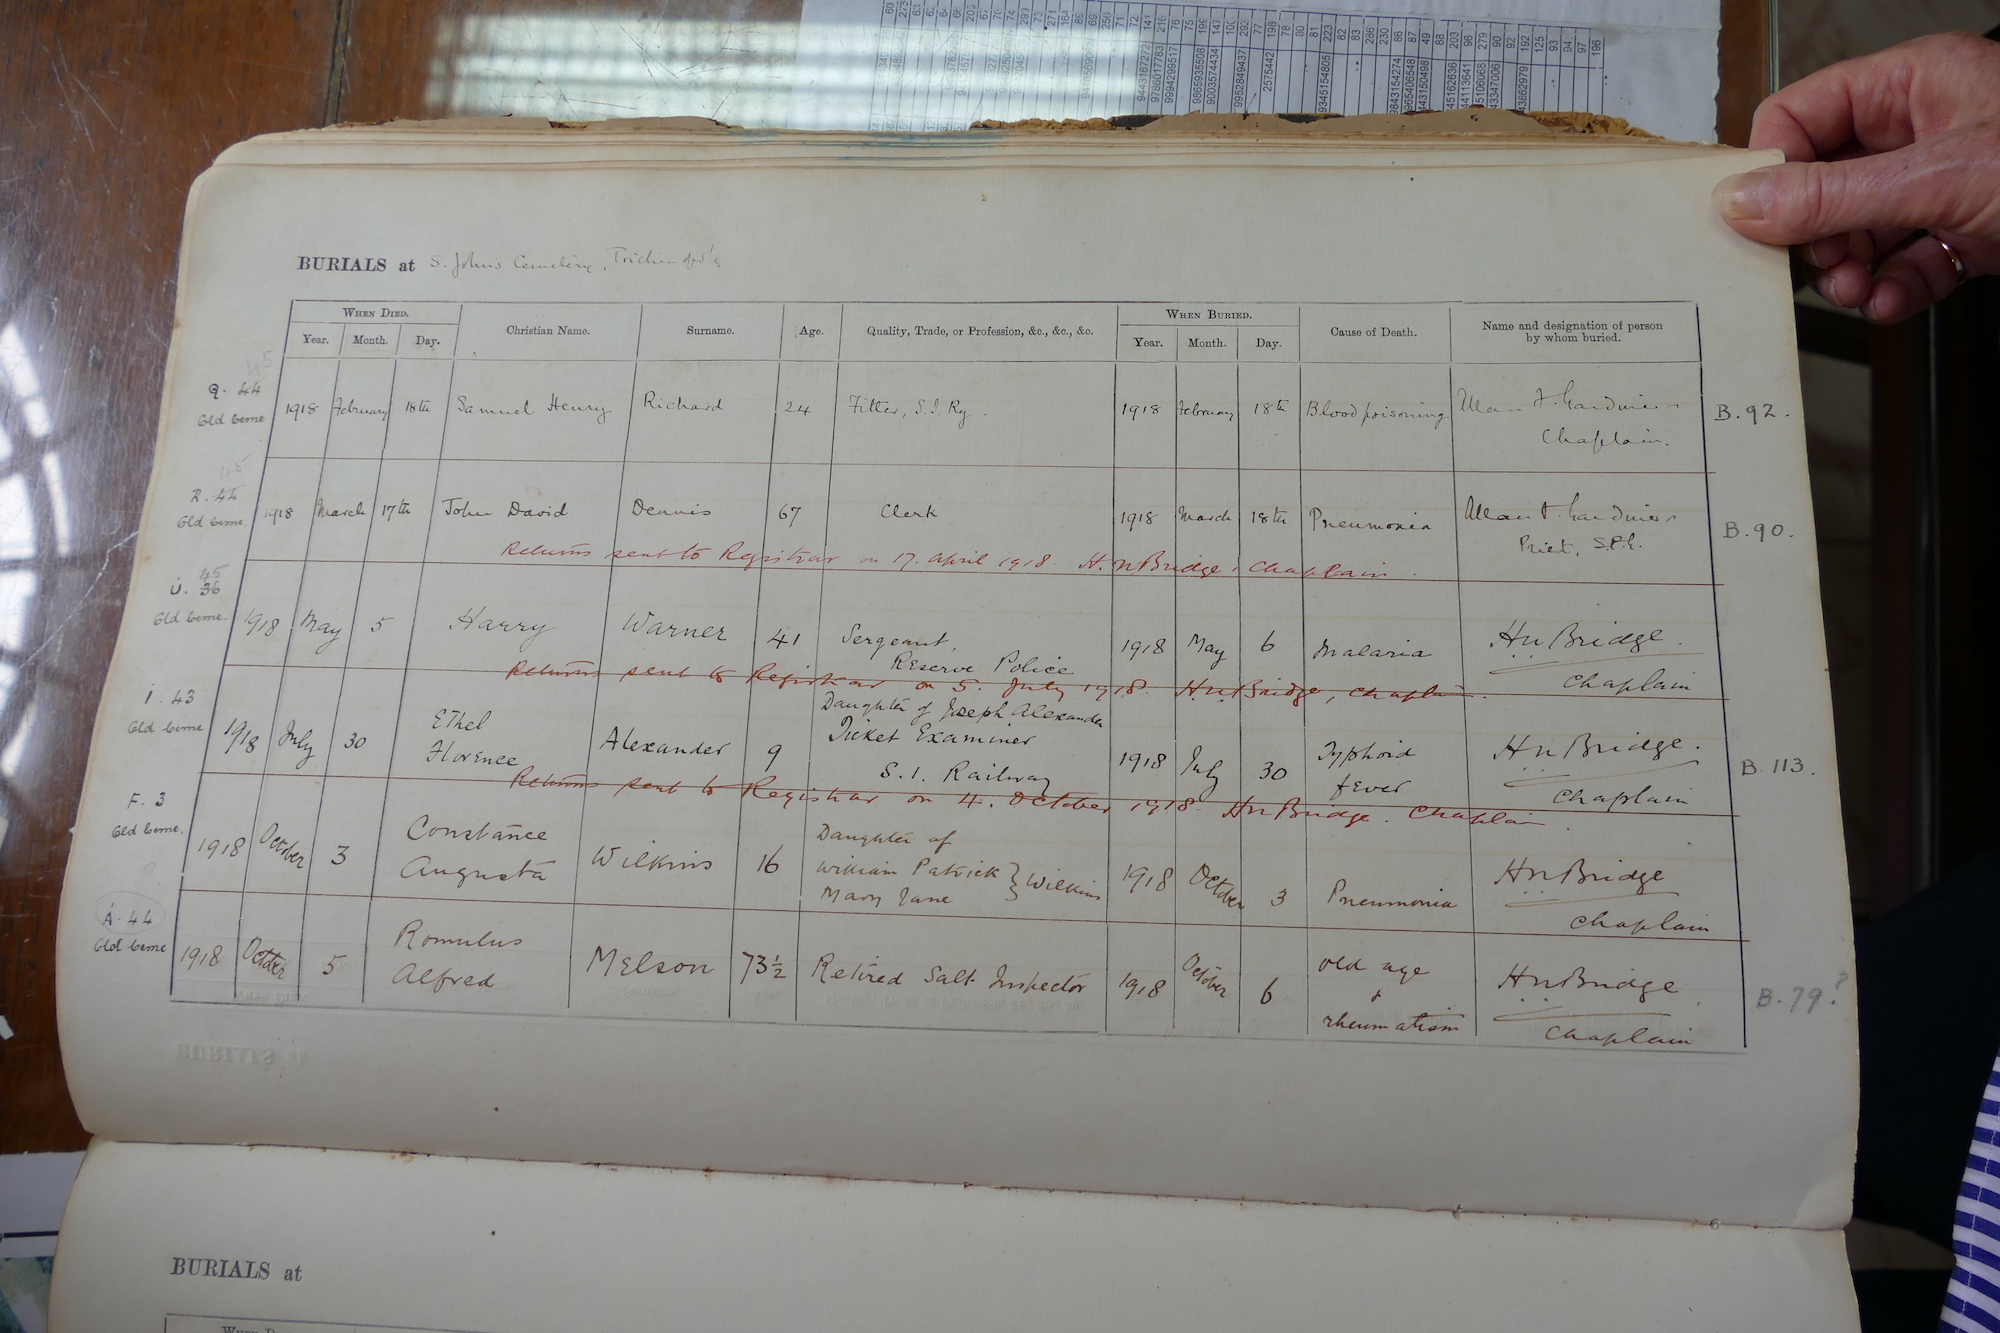 BURIALS at S. Johns Cemetery, Trichinopoly
WHEN DIED. Christian Name. Surname. Age. Quality, Trade, or Profession, &c., &c., &c. WHEN BURIED. Cause of Death. Name and designation of person by whom buried.
Year. Month. Day. Year. Month. Day.
45
Q. 44
Old Ceme 1918 February 18th Samuel Henry Richard 24 Fitter, S.I. Ry. 1918 February 18th Blood poisoning Allan F. Gardiner B. 92.
Chaplain.
45
R. 44
Old Ceme. 1918 March 17th John David Dennis 67 Clerk 1918 March 18th Pneumonia Allan F. Gardiner B. 90.
Priest, S.P.G.
Returns sent to Registrar on 17. April 1918. H. N Bridge, Chaplain.
45
U. 36
Old Ceme. 1918 May 5 Harry Warner 41 Sergeant, 1918 May 6 Malaria H N Bridge.
Reserve Police Chaplain
Returns sent to Registrar on 5. July 1918. H.N. Bridge, Chaplain.
I. 43
Old Ceme 1918 July 30 Ethel Florence Alexander 9 Daughter of Joseph Alexander
Ticket Examiner
S. I. Railway 1918 July 30 Typhoid fever H N Bridge.
Chaplain B. 113.
Returns sent to Registrar on 4. October 1918. H N Bridge. Chaplain.
F. 3
Old Ceme. 1918 October 3 Constance Augusta Wilkins 16 Daughter of
William Patrick
Mary Jane } Wilkins 1918 October 3 Pneumonia H N Bridge
Chaplain
A. 44
Old Ceme 1918 October 5 Romulus Alfred Melson 73½ Retired Salt Inspector 1918 October 6 old age
&
rheumatism H N Bridge
Chaplain B. 79?
BURIALS at